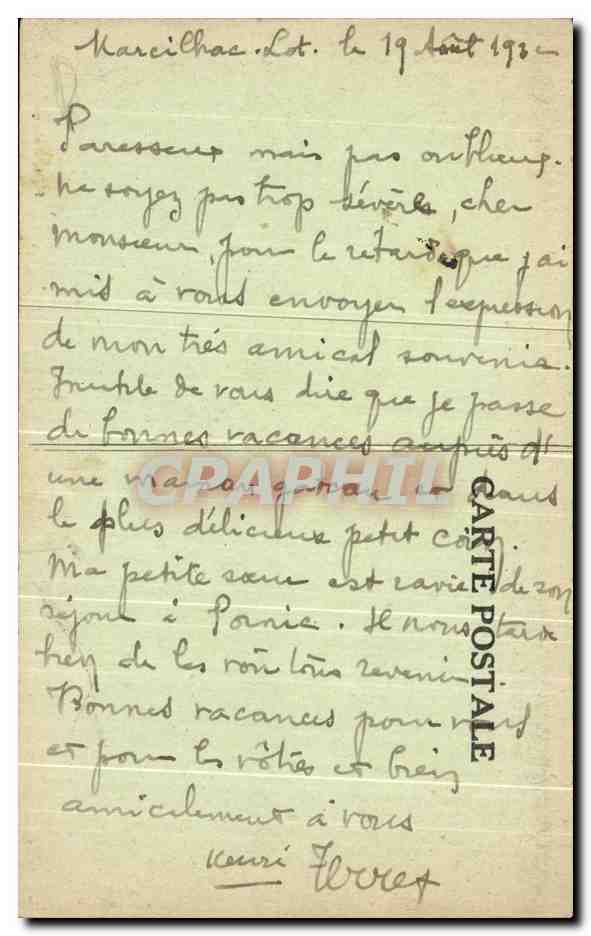 Marcilhac. Lot. le 19 Août 193
Paresseux mais pas oublieux.
Ne soyez pas trop sévère, cher
Monsieur, pour le retard que j'ai
mis à vous envoyer l'expression
de mon très amical souvenir.
Inutile de vous dire que je passe
de bonnes vacances auprès d'
une maman gâteau et dans
le plus délicieux petit coin.
Ma petite sœur est ravie de son
séjour à Pornic. Il nous tarde
bien de les voir tous revenir.
Bonnes vacances pour vous
et pour les vôtres et bien
amicalement à vous
Henri
CARTE POSTALE
CPAPHIL